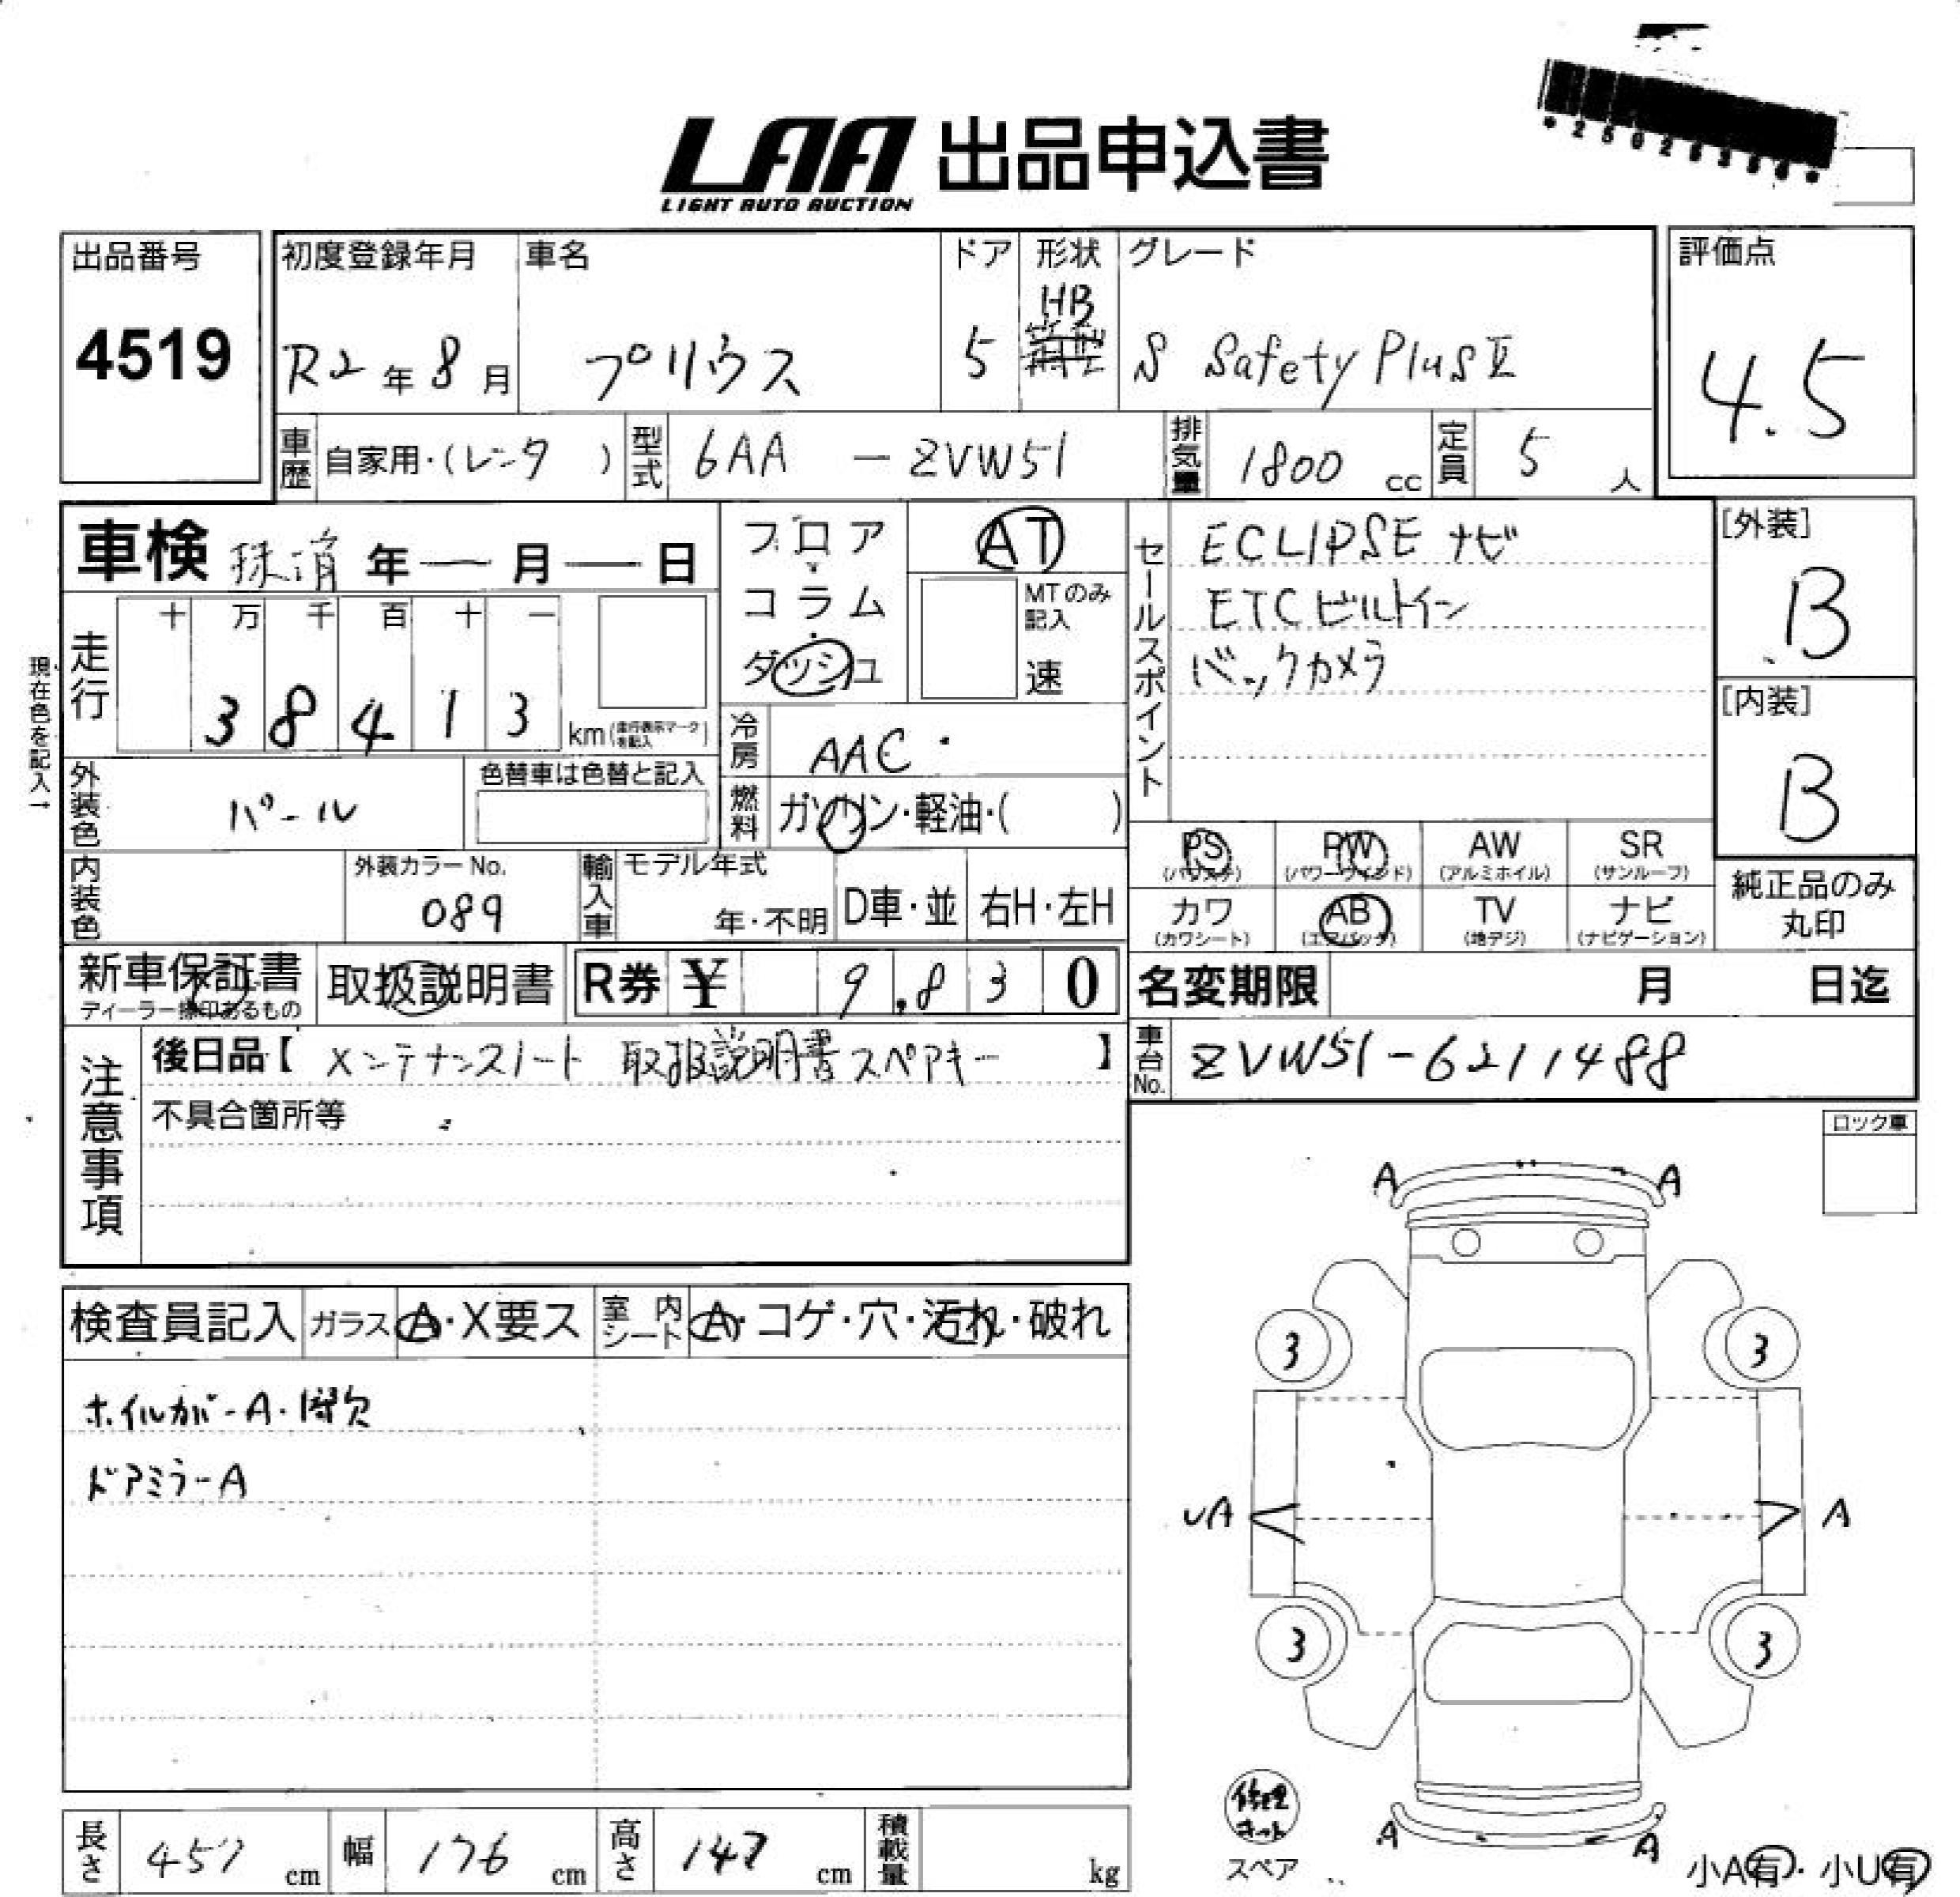 LAA 出品申込書
LIGHT AUTO AUCTION
出品番号
4519
初度登録年月
R2年8月
車名
プリウス
ドア
5
形状
HB
箱型
グレード
S Safety Plus Ⅱ
評価点
4.5
車歴
自家用・(レンタ )
型式
6AA - ZVW51
排気量
1800 cc
定員
5 人
車検 抹消 年 ー 月 ー 日
フロア
コラム
ダッシュ
AT
MTのみ記入
速
セールスポイント
ECLIPSE ナビ
ETCビルトイン
バックカメラ
[外装]
B
[内装]
B
現在色を記入→
走行
十 万 千 百 十 一
3 8 4 1 3
km(走行表示マークを記入)
冷房
AAC
燃料
ガソリン・軽油・( )
外装色
パール
色替車は色替と記入
内装色
外装カラーNo.
089
輸入車
モデル年式
年・不明
D車・並
右H・左H
PS
(パワステ)
PW
(パワーウインド)
AW
(アルミホイル)
SR
(サンルーフ)
カワ
(カワシート)
AB
(エアバッグ)
TV
(地デジ)
ナビ
(ナビゲーション)
純正品のみ
丸印
新車保証書
ディーラー捺印あるもの
取扱説明書
R券 ¥ 9,830
名変期限 月 日迄
注意事項
後日品【 メンテナンスノート 取扱説明書 スペアキー 】
不具合箇所等
車台No.
ZVW51-6211488
ロック車
検査員記入
ガラス
A・X要ス
室内シート
A・コゲ・穴・汚れ・破れ
ホイルカバーA・
ドアミラーA
A A
3 3
UA A
3 3
A A
修理キット
スペア
小A有・小U有
長さ
457 cm
幅
176 cm
高さ
147 cm
積載量
kg